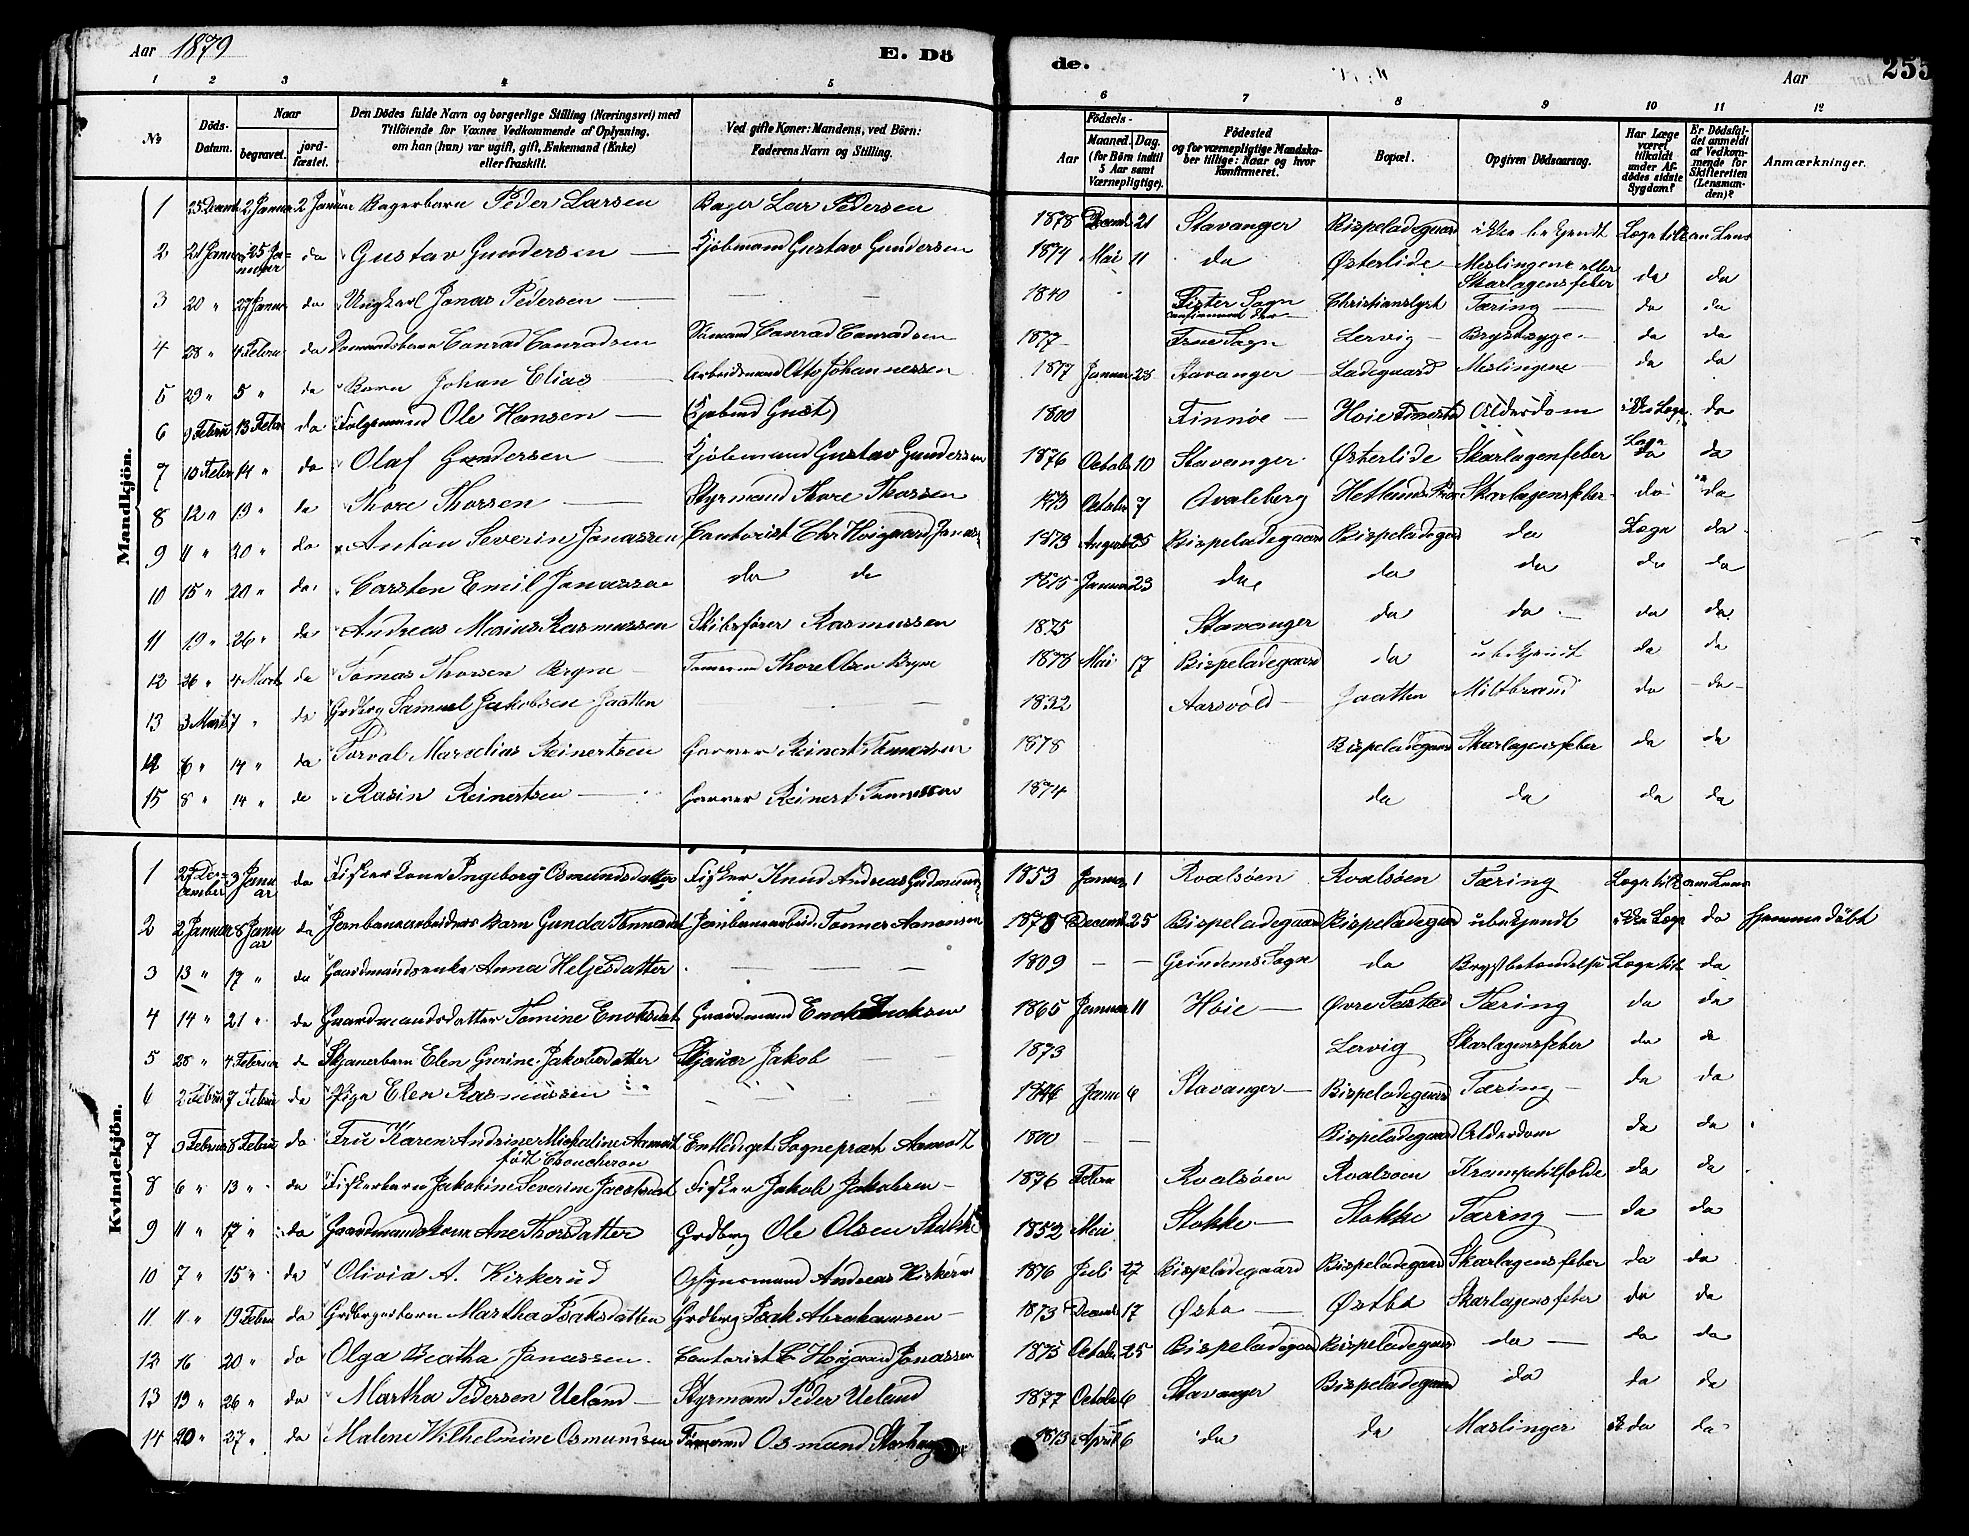 Aar 1879
E. Dö
de.
Aar
255
1 2 3 4 5
6 7 8 9 10 11 12
No
Döds-Datum.
Naar
begravet.
jord-fæstet.
Den Dödes fulde Navn og borgerlige Stilling (Næringsvei) med Tilföiende for Voxnes Vedkommende af Oplysning, om han (hun) var ugift, gift, Enkemand (Enke) eller fraskilt.
Ved gifte Koner: Mandens, ved Börn: Faderens Navn og Stilling.
Födsels-
Aar
Maaned. Dag.
(for Börn indtil 5 Aar samt Værnepligtige).
Födested
og for værnepligtige Mandskaber tillige: Naar og hvor Konfirmeret.
Bopæl.
Opgiven Dödsaarsag.
Har Læge været tilkaldt under Afdödes sidste Sygdom?
Er Dödsfaldet anmeldt af Vedkommende for Skifteretten (Lensmanden)?
Anmærkninger.
Mandkjön.
1 25 Decemb 2 Januar 2 Januar Bagerbarn Peder Larsen Bager Lar Pedersen 1878 Decemb 21 Stavanger Bispeladegaard ikke bekjendt
2 21 Januar 25 Januar do Gustav Gundersen Kjöbmand Gustav Gundersen 1874 Mai 11 do Østerlide Meslingene eller Skarlagensfeber do do
3 20 " 27 Januar do Ungkarl Jonas Pedersen 1840 Fister Sogn Christianslyst Tæring do do
4 28 " 4 Febru do Conrad Conradsen Conrad Conradsen 1877 Frue Sogn Lervig Brystsyge do do
5 29 " 5 " do Barn Johan Elias Arbeidsmand Otto Johannessen 1877 Januar 25 Stavanger Ladegaard Meslingene do do
6 9 Febru 13 Febr do Folgemand Ole Hansen 1800 Finnöe Hoie Alderdom ikke Læge do
7 10 Febr 14 " do Olaf Gundersen Kjöbmand Gustav Gundersen 1876 Octob 10 Stavanger Østerlide Skarlagenfeber do do
8 12 " 19 " do Thore Thorsen Styrmand Thore Thorsen 1873 Octob 7 Qvaleberg Skarlagensfeber do do
9 11 " 20 " do Anton Severin Jonassen Contorist Chr Hoigaard Jonas 1873 August 25 Bispeladegaard Bispeladegaard do Læge do
10 15 " 20 " do Carsten Emil Jonassen do do 1875 Januar 23 do do do do do
11 19 " 26 " do Andreas Marius Rasmussen Skibsförer Rasmussen 1875 Stavanger do do do do
12 26 " 4 Marts do Tomas Thorsen Bryne Thore Olsen Bryne 1878 Mai 17 Bispeladegaard do ubekjendt do do
13 3 Marts 7 " do Grdbrg Samuel Jakobsen Jaatten 1832 Aarsvold Jaatten Miltbrand do do
14 6 " 14 " do Torval Marselius Reinertsen Garver Reinert 1878 Bispeladegaard Skarlagensfeber do do
15 8 " 14 " do Rasin Reinertsen Garver Reinert 1874 do do do do
Kvindekjön.
1 27 December 3 Januar do Fiskerkone Ingeborg Osmundsdatter Fisker Knud Andreas Gudmund 1853 Januar 1 Roalsöen Roalsöen Tæring
2 2 Januar 8 Januar do Jernbanearbeiders Barn Gunda Jernbanearbeid. Tonnes Aanonsen 1878 Decemb 25 Bispeladegaard Bispeladegaard ubekjendt ikke Læge do Hjemmedöbt
3 13 " 17 " do Gaardmandsenke Anna Heljesdatter 1809 Grindems Sogn do Brystbetændelse do
4 14 " 21 " do Gaardmandsdatter Tomine Enoksdat Gaardmand Enok Enoksen 1865 Januar 11 Hoie Øvre Tastad Tæring do do
5 28 " 4 Februar do Elen Gurine Jakobsdatter Jakob 1873 Lervig Skarlagensfeber do do
6 2 Febru 7 Febru do Pige Elen Rasmussen 1846 Janu 6 Stavanger Bispeladegaard Tæring do do
7 3 Februar 8 Febru do Frü Karen Andrine Michaline Aamodt Entlediget Sogneprest Aamodt 1800 Bispeladegaard Alderdom do do
född Coucheron
8 6 " 13 " do Fiskerbarn Jakobine Severine Jacobsdat Fisker Jakob Jakobsen 1876 Febru Roalsöen Roalsoen Krampetilfælde do do
9 11 " 17 " do Gaardmandskone Ane Thorsdatter Grdbrg Ole Olsen Stokke 1852 Mai Stokke Stokke Tæring do do
10 7 " 15 " do Olivia A. Kirkerud Opsynsmand Andreas Kirkerud 1876 Juli 27 Bispeladegaard Bispeladegaard Skarlagensfeber do do
11 11 " 19 Febru do Martha Isaksdatter Grdbrg Isak Abrahamsen 1873 Decemb 17 Østbø Skarlagensfeber do do
12 16 20 " do Olga Beatha Jonassen Contorist C Hoigaard Jonassen 1875 Octob 25 Bispeladegaard Bispeladegaard do do do
13 19 " 26 " do Martha Pedersen Ueland Styrmand Peder Ueland 1877 Octob 6 Stavanger Bispeladegaard do do do
14 20 " 27 " do Malene Wilhelmine Osmundsen Osmund 1873 April 6 do do Mæslinger do do